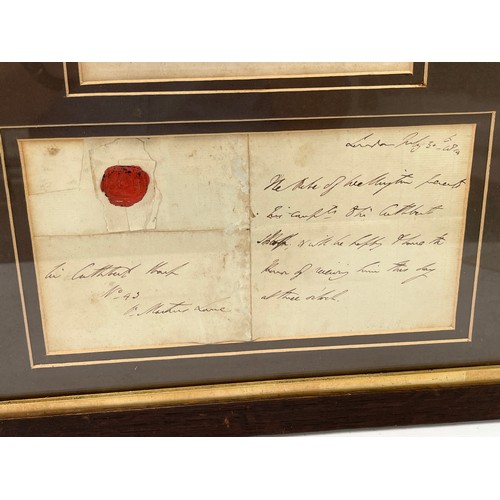 London July 30th 1814
The Duke of Wellington presents
his compts to Sir Cuthbert
Sharp, & will be happy to have the
honor of receiving him this day
at three o'clock.
Sir Cuthbert Sharp
No. 43
St Martins Lane